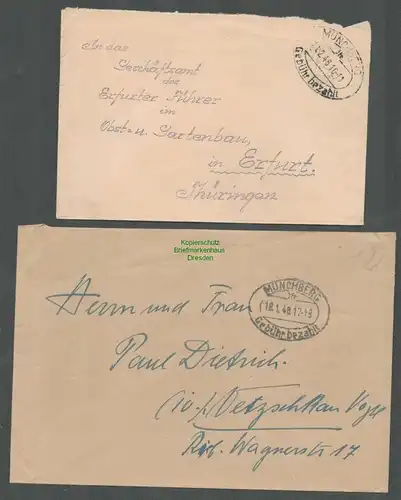 An das
Geschäftsamt
der
Erfurter Führer
im
Obst- u. Gartenbau,
in Erfurt.
Thüringen
MÜNCHBERG
.2.46.10-11
Gebühr bezahlt
Kopierschutz
Briefmarkenhaus
Dresden
MÜNCHBERG
18.1.46.17-18
Gebühr bezahlt
Herrn und Frau
Paul Dietrich
(10 Netzschkau Vogtl
Rich. Wagnerstr. 17